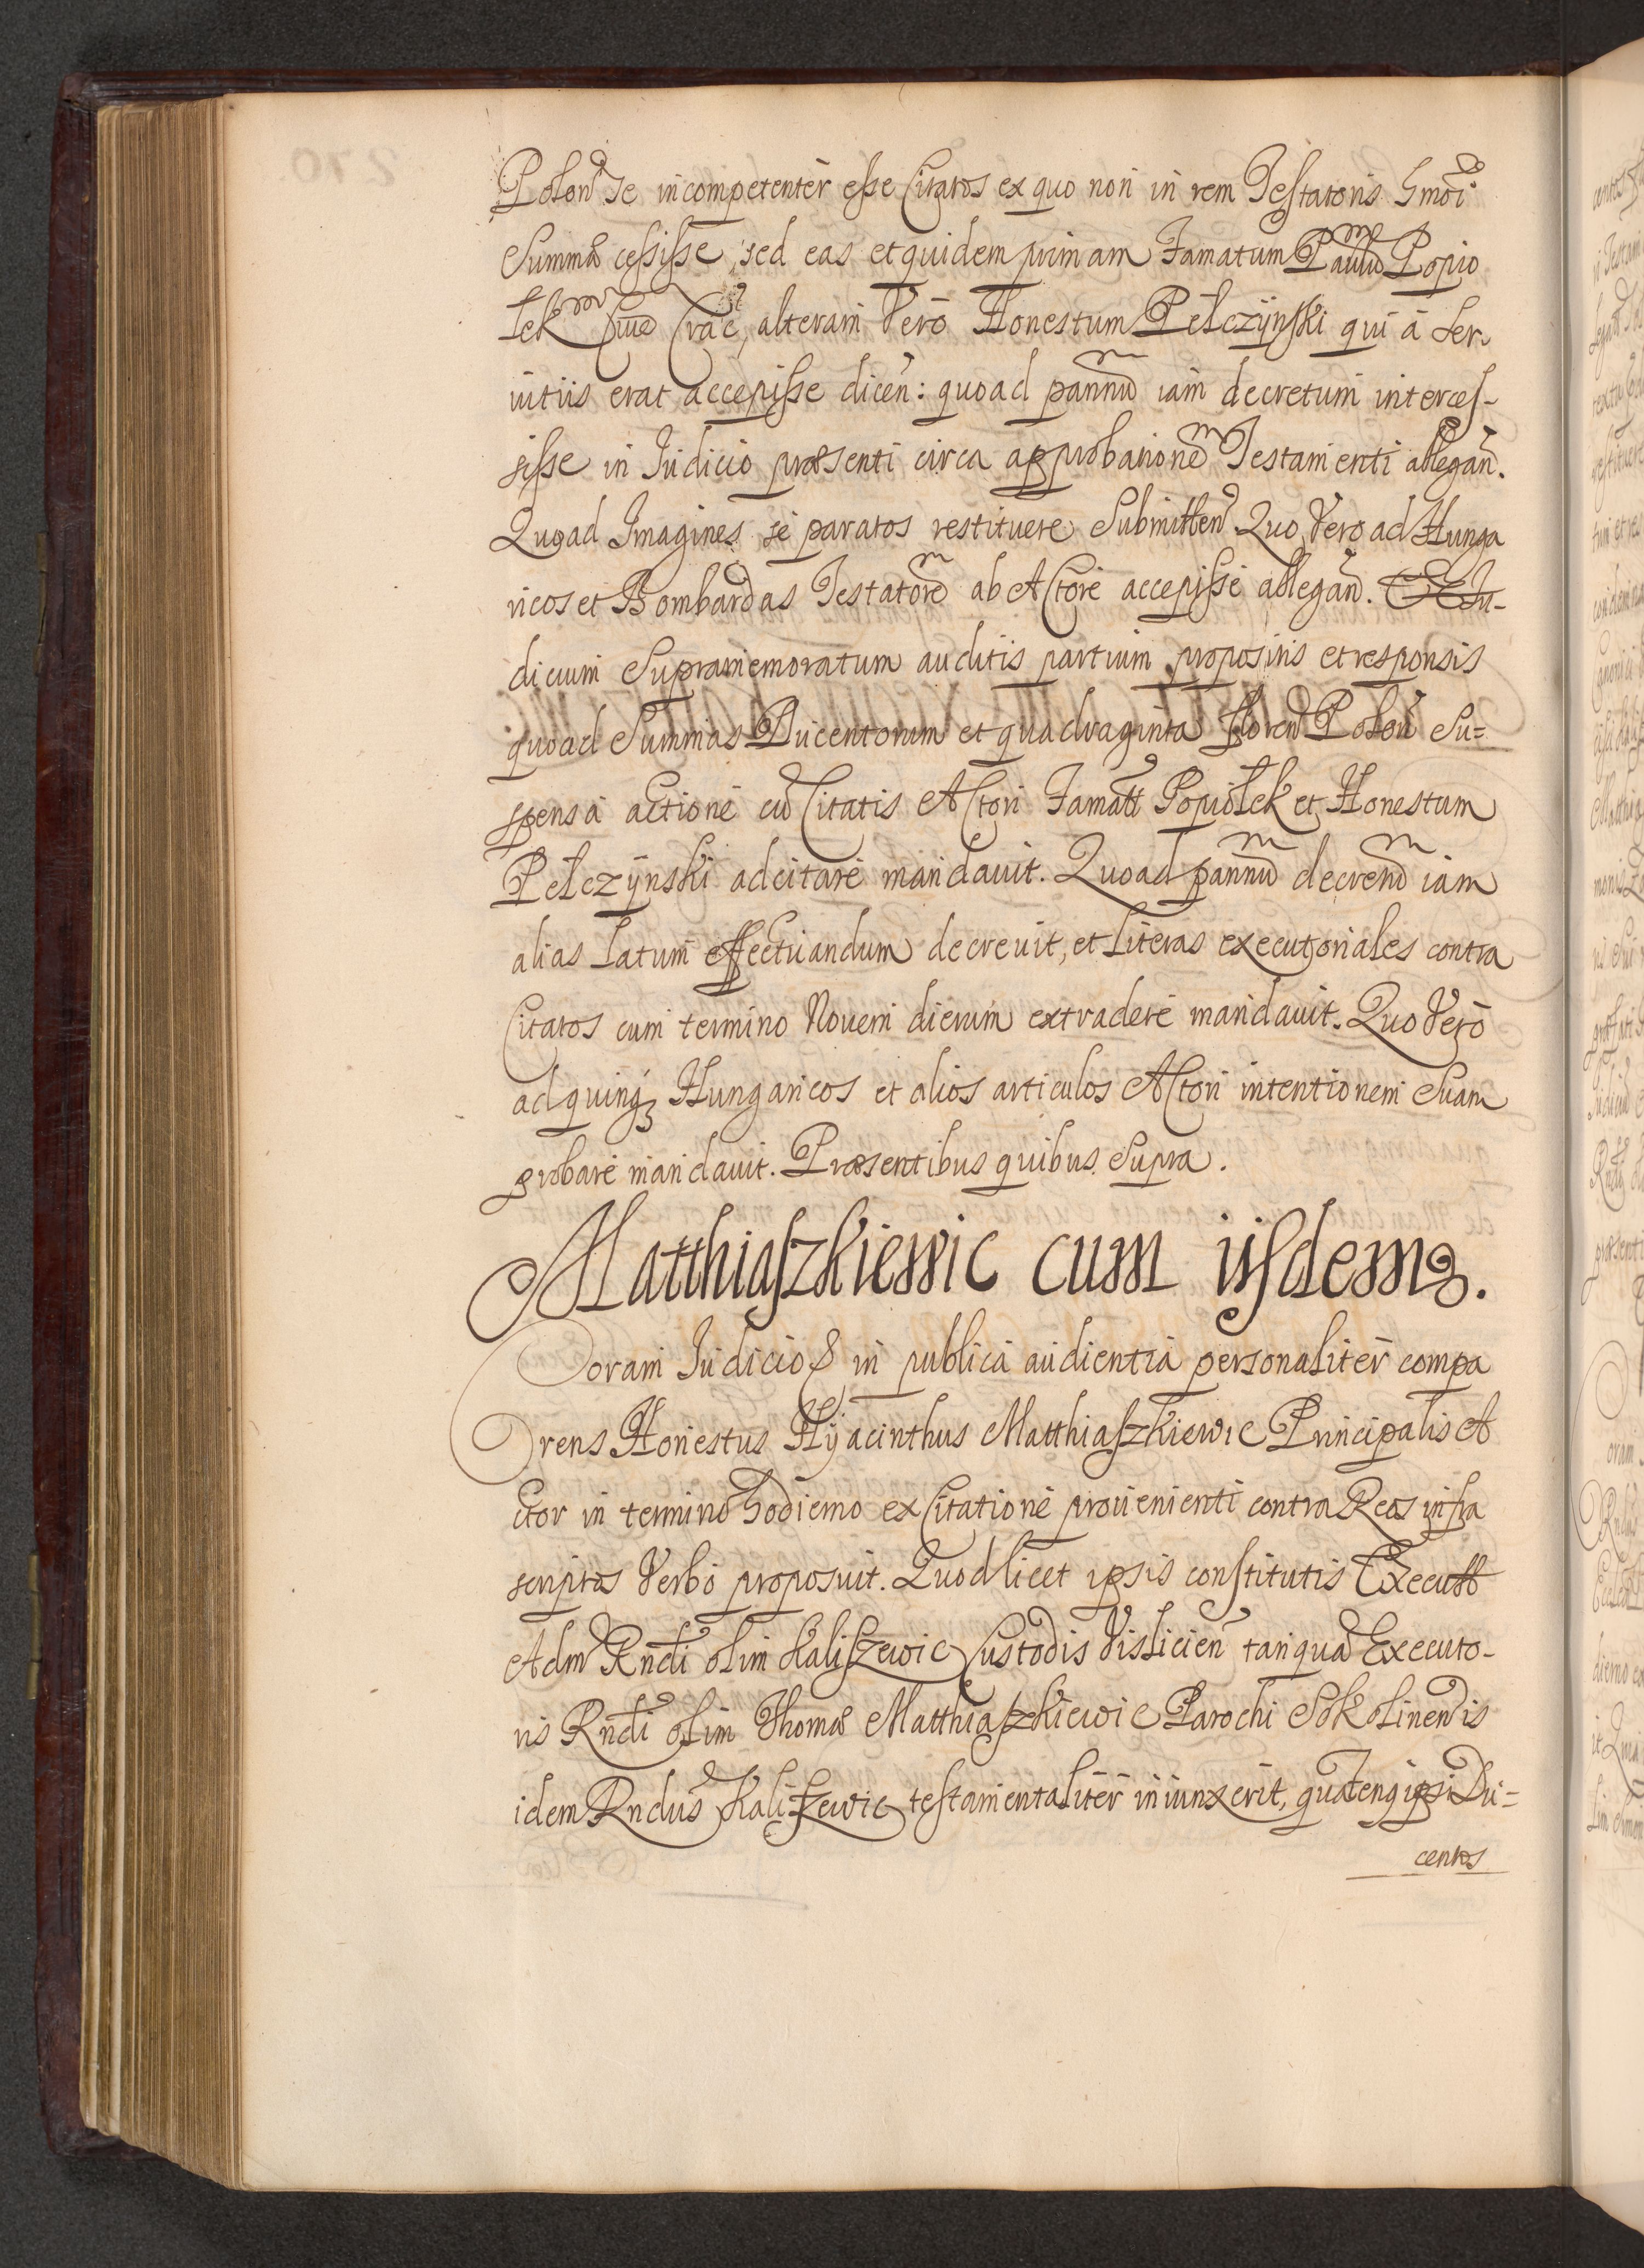 Polon̄ se incompetentèr esse Citatos ex quo non in rem Testatoris Hmōi
Summæ cessisse, sed eas et quidem primam Famatum Paulū Popio
łek Ciuē Crac̄, alteram Verò Honestum Pełczÿnski qui à Ser-
uitiis erat accepisse dicen̄: quoad pannū iam decretum interces-
sisse in Iudicio præsenti circa approbationē Testamenti allegan̄.
Quoad Imagines se paratos restituere Submitten̄ Quo Vero ad Hunga
ricos et Bombardas Testatorē ab Actore accepisse allegan̄. Et Iu-
dicium Supramemoratum auditis partium propositis et responsis
quoad Summas Ducentorum et quadraginta floren̄ Polon̄ Su=
spensa actione cū Citatis Actori Famatt Popiołek et Honestum
Pełczÿnski adcitare mandauit. Quoad pannū decretū iam
alias latum effectuandum decreuit, et literas executoriales contra
Citatos cum termino Nouem dierum extradere mandauit. Quo Verò
ad quinqȝ Hungaricos et alios articulos Actori intentionem Suam
probare mandauit. Præsentibus quibus Supra.
Matthiaszkiewic cum iisdem.
Coram Iudicio & in publica audientia personalitèr compa
rens Honestus Hÿacinthus Matthiaszkiewic Principalis A
ctor in termino hodierno ex Citatione prouenienti contra Reos infra
scriptos Verbo proposuit. Quod licet ipsis constitutis Executt
Adm̄ Rn̄di olim Kaliszewic Custodis Vislicien̄ tanquā Executo-
ris Rn̄di olim Thomæ Matthiaszkiewic Parochi Sokolinen̄sis
idem Rn̄dus Kaliszewic testamentalitèr iniunxerit, quatenq ipsi Du=
centos